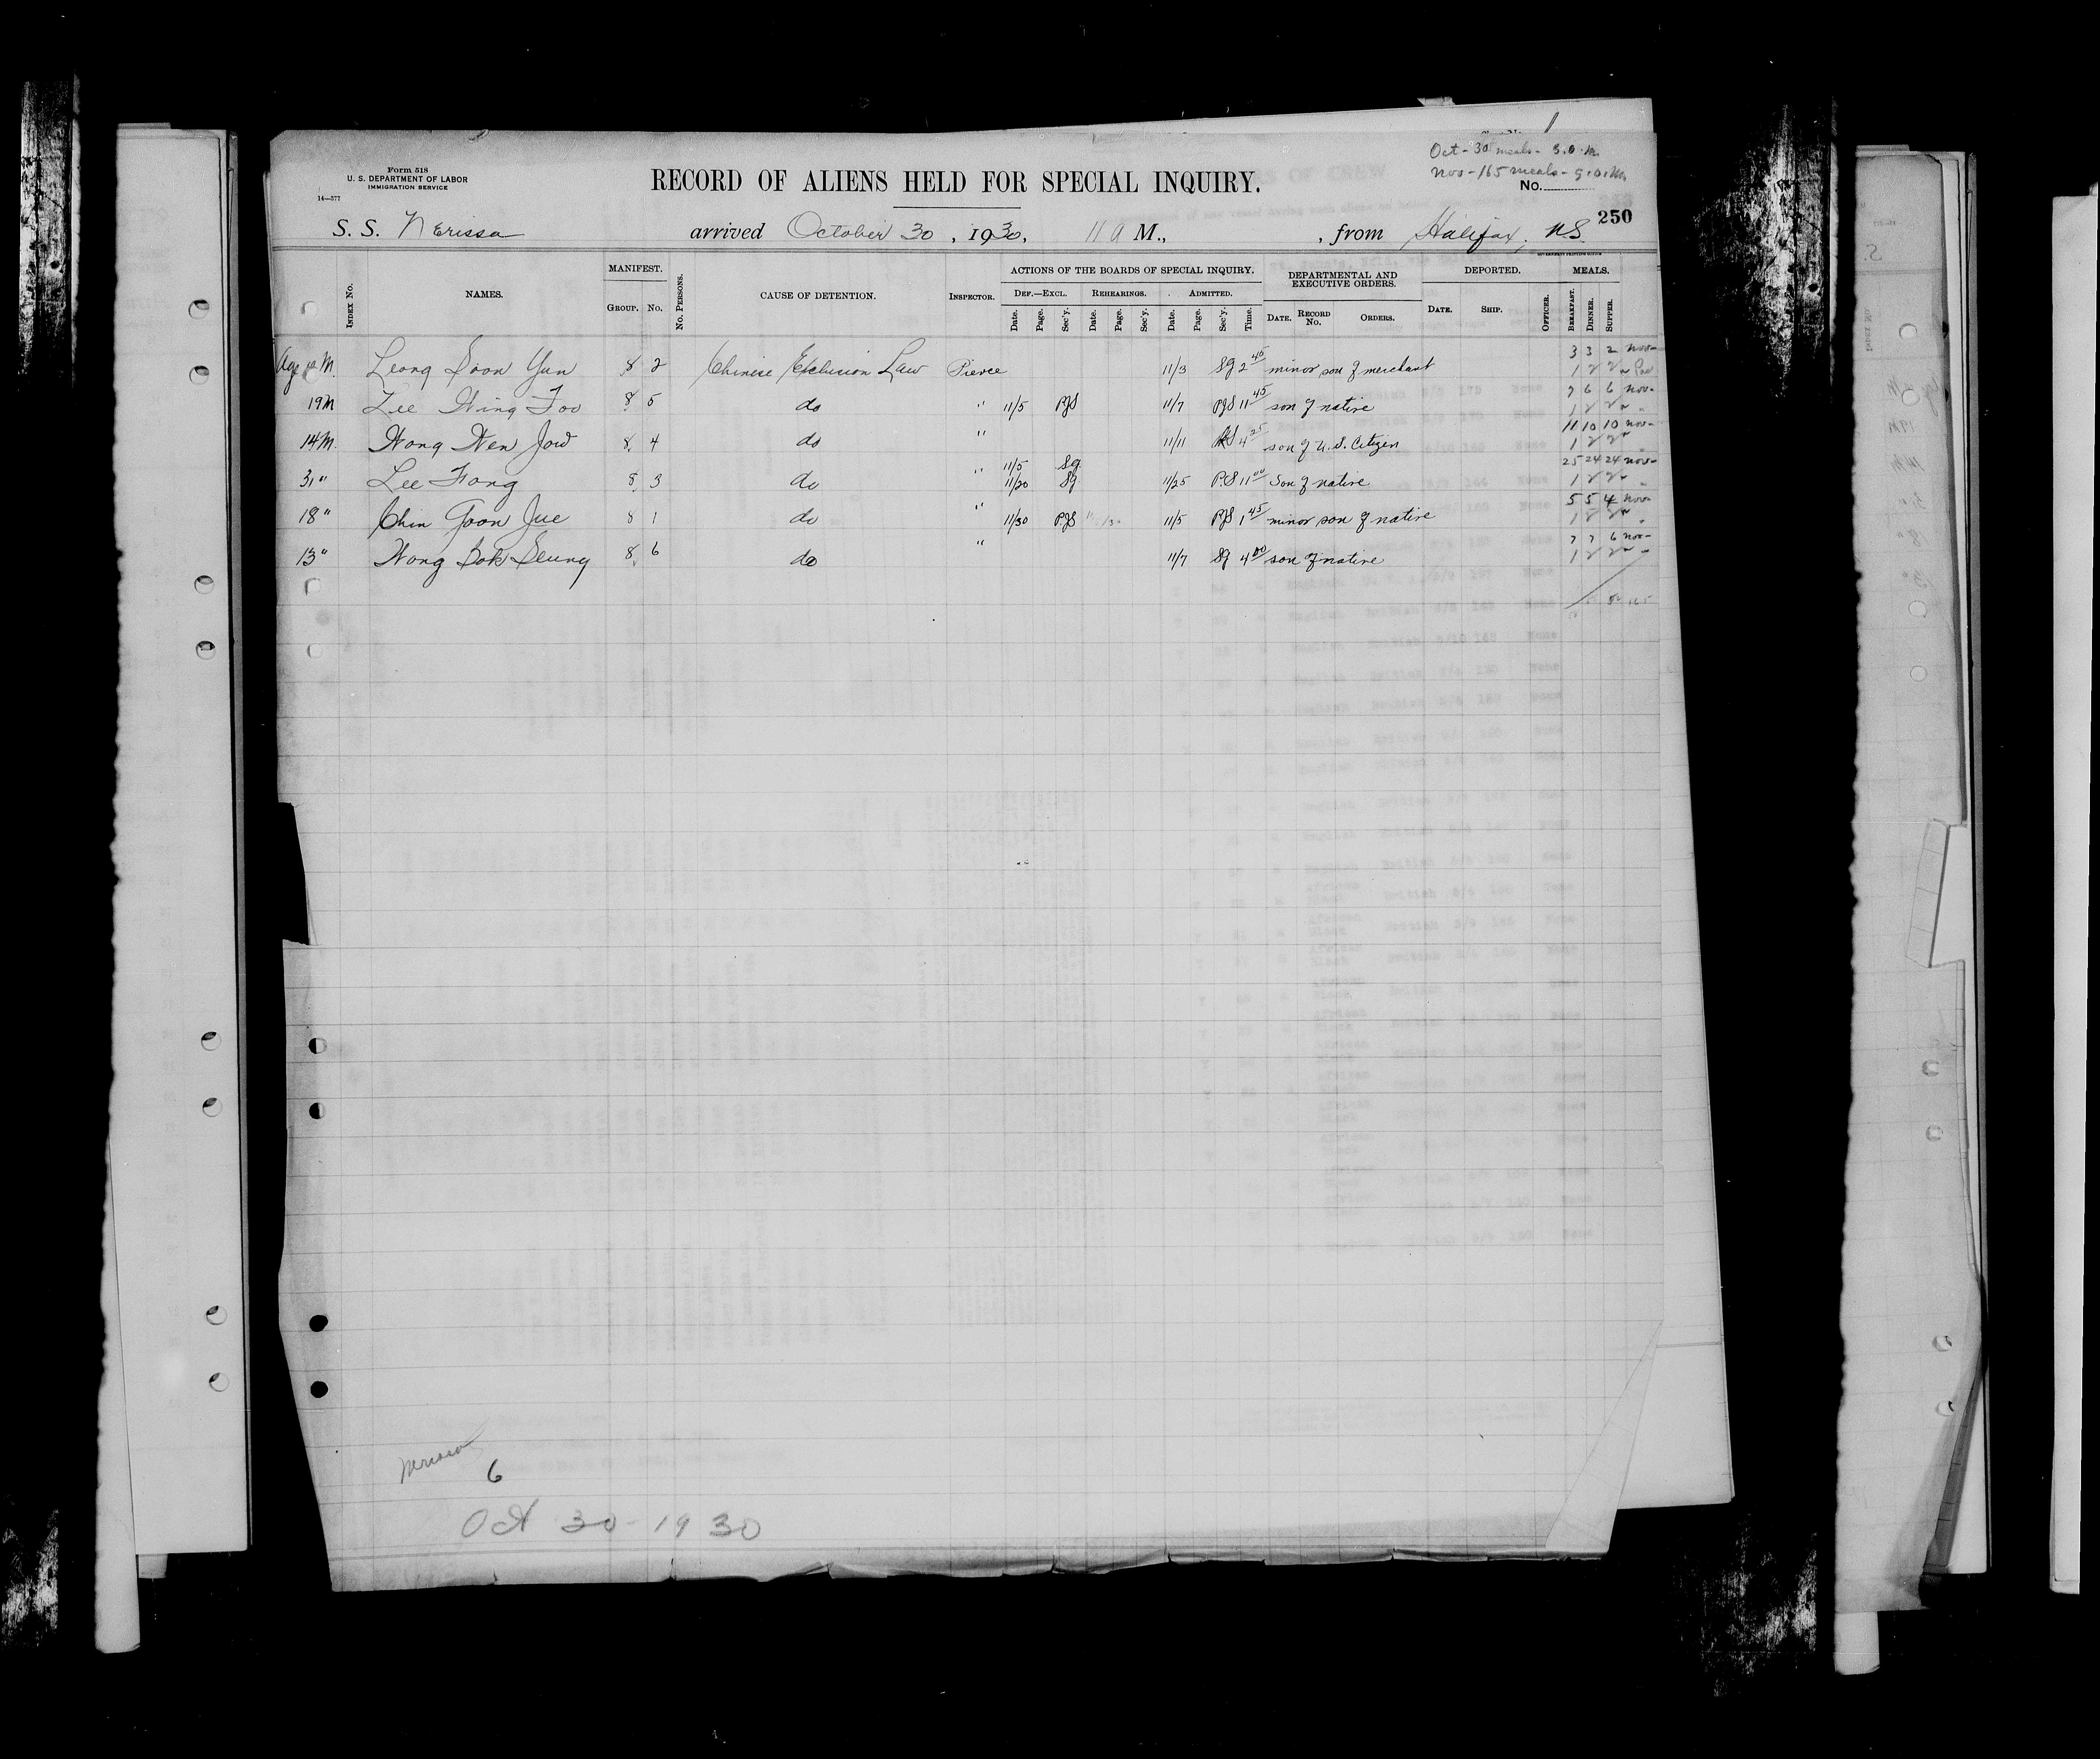 1
Oct - 30 meals - S.O.M.
Nov - 165 meals - S.O.M.
Form 518
U. S. DEPARTMENT OF LABOR
IMMIGRATION SERVICE
14—577
RECORD OF ALIENS HELD FOR SPECIAL INQUIRY.
No.
250
S. S. Nerissa arrived October 30, 1930, 11 a M., , from Halifax, N.S.
GOVERNMENT PRINTING OFFICE
INDEX NO. NAMES. MANIFEST. GROUP. NO. NO. PERSONS. CAUSE OF DETENTION. INSPECTOR. ACTIONS OF THE BOARDS OF SPECIAL INQUIRY. DEPARTMENTAL AND EXECUTIVE ORDERS. DEPORTED. MEALS.
DEF.—EXCL. REHEARINGS. ADMITTED.
Date. Page. Sec'y. Date. Page. Sec'y. Date. Page. Sec'y. Time. DATE. RECORD NO. ORDERS. DATE. SHIP. OFFICER. BREAKFAST. DINNER. SUPPER.
Age M. Leong Soon Yun 8 2 Chinese Exclusion Law Pierce 11/3 SG 2 45 minor son of merchant 3 3 2 Nov-
19 M Lee Wing Foo 8 5 do " 11/5 PJS 11/7 PJS 11 45 son of native 7 6 6 Nov-
14 M. Wong Wen Jow 8 4 do " 11/11 4 25 son of U.S. Citizen 11 10 10 Nov-
31 " Lee Fong 8 3 do " 11/5 SG 11/20 SG 11/25 P.S 11 00 Son of native 25 24 24 Nov-
18 " Chin Goon Jue 8 1 do " 11/30 PJS 11/5 PJS 1 45 minor son of native 5 5 4 Nov-
13 " Wong Sok Seung 8 6 do " 11/7 SG 4 00 son of native 7 7 6 Nov-
Nerissa
6
Oct 30 - 1930